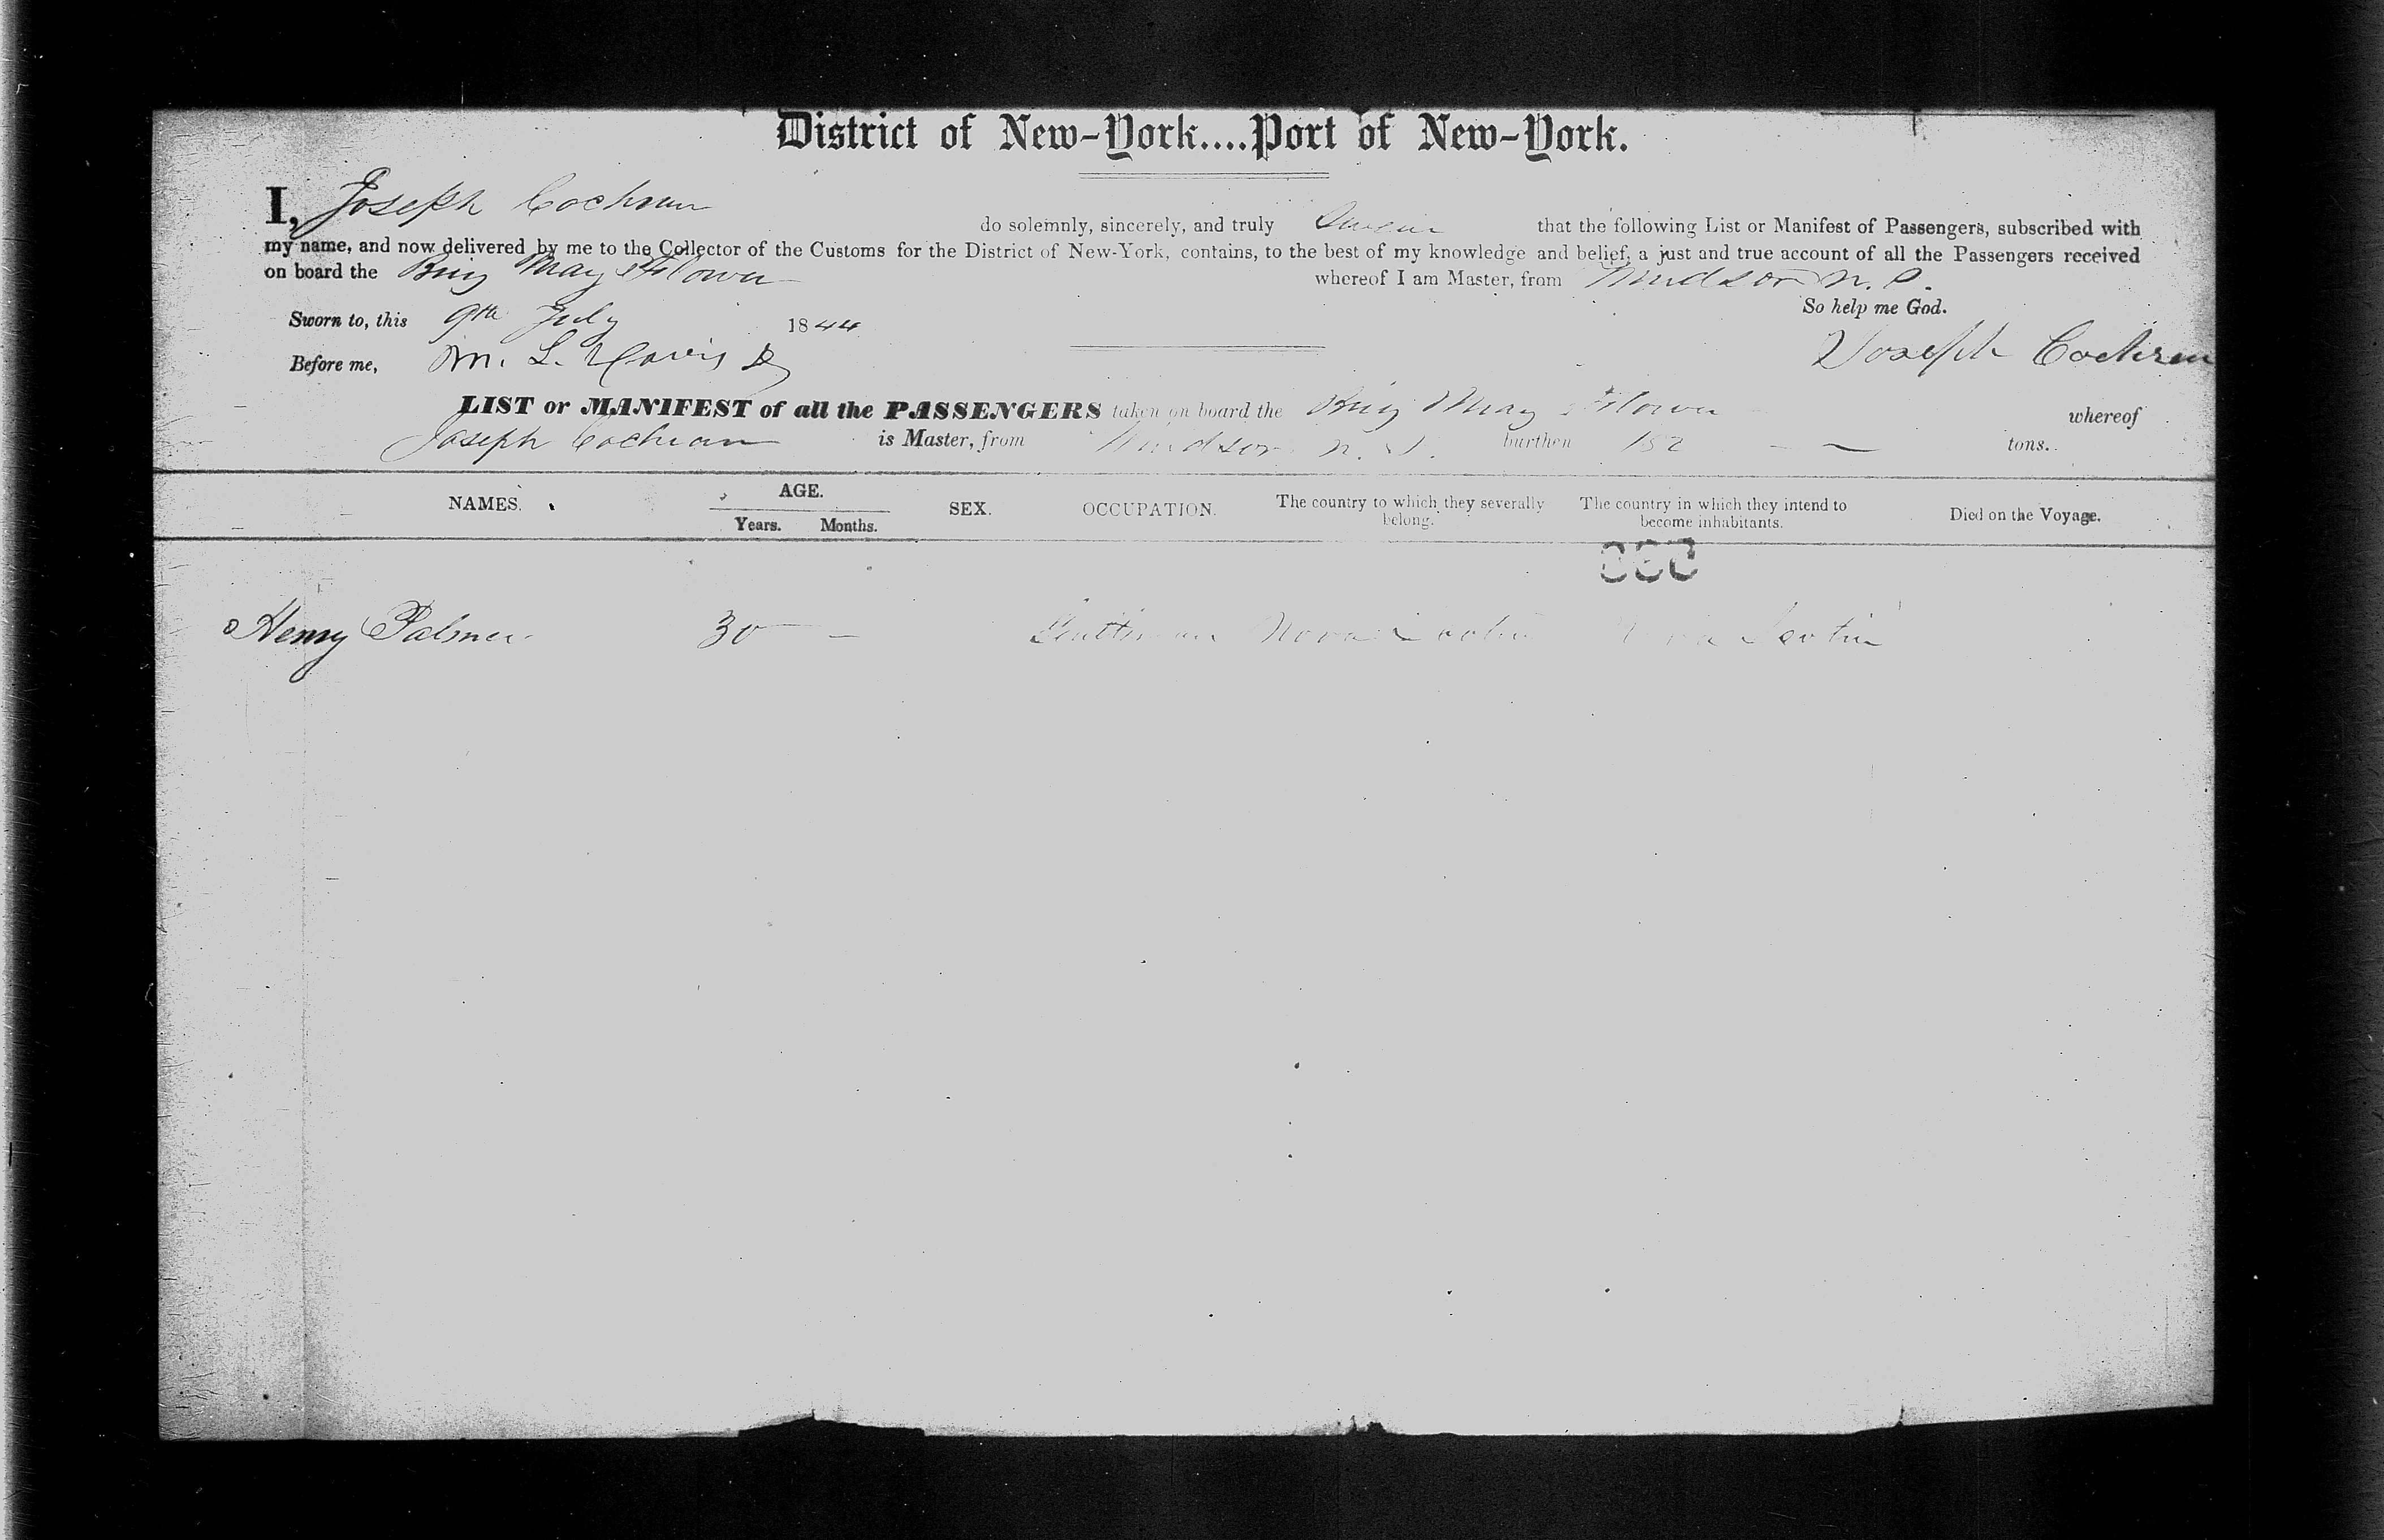 District of New-York....Port of New-York.
I, Joseph Cochran do solemnly, sincerely, and truly Swear that the following List or Manifest of Passengers, subscribed with
my name, and now delivered by me to the Collector of the Customs for the District of New-York, contains, to the best of my knowledge and belief, a just and true account of all the Passengers received
on board the Brig May Flower whereof I am Master, from Windsor N. S.
So help me God.
Sworn to, this 9th July 1844
Joseph Cochran
Before me, M. L. Davis
LIST or MANIFEST of all the PASSENGERS taken on board the Brig May Flower whereof
Joseph Cochran is Master, from Windsor N. S. burthen 152 tons.
NAMES. AGE. SEX. OCCUPATION. The country to which they severally The country in which they intend to Died on the Voyage.
Years. Months. belong. become inhabitants.
Henry Palmer 30 Gentleman Nova Scotia Nova Scotia